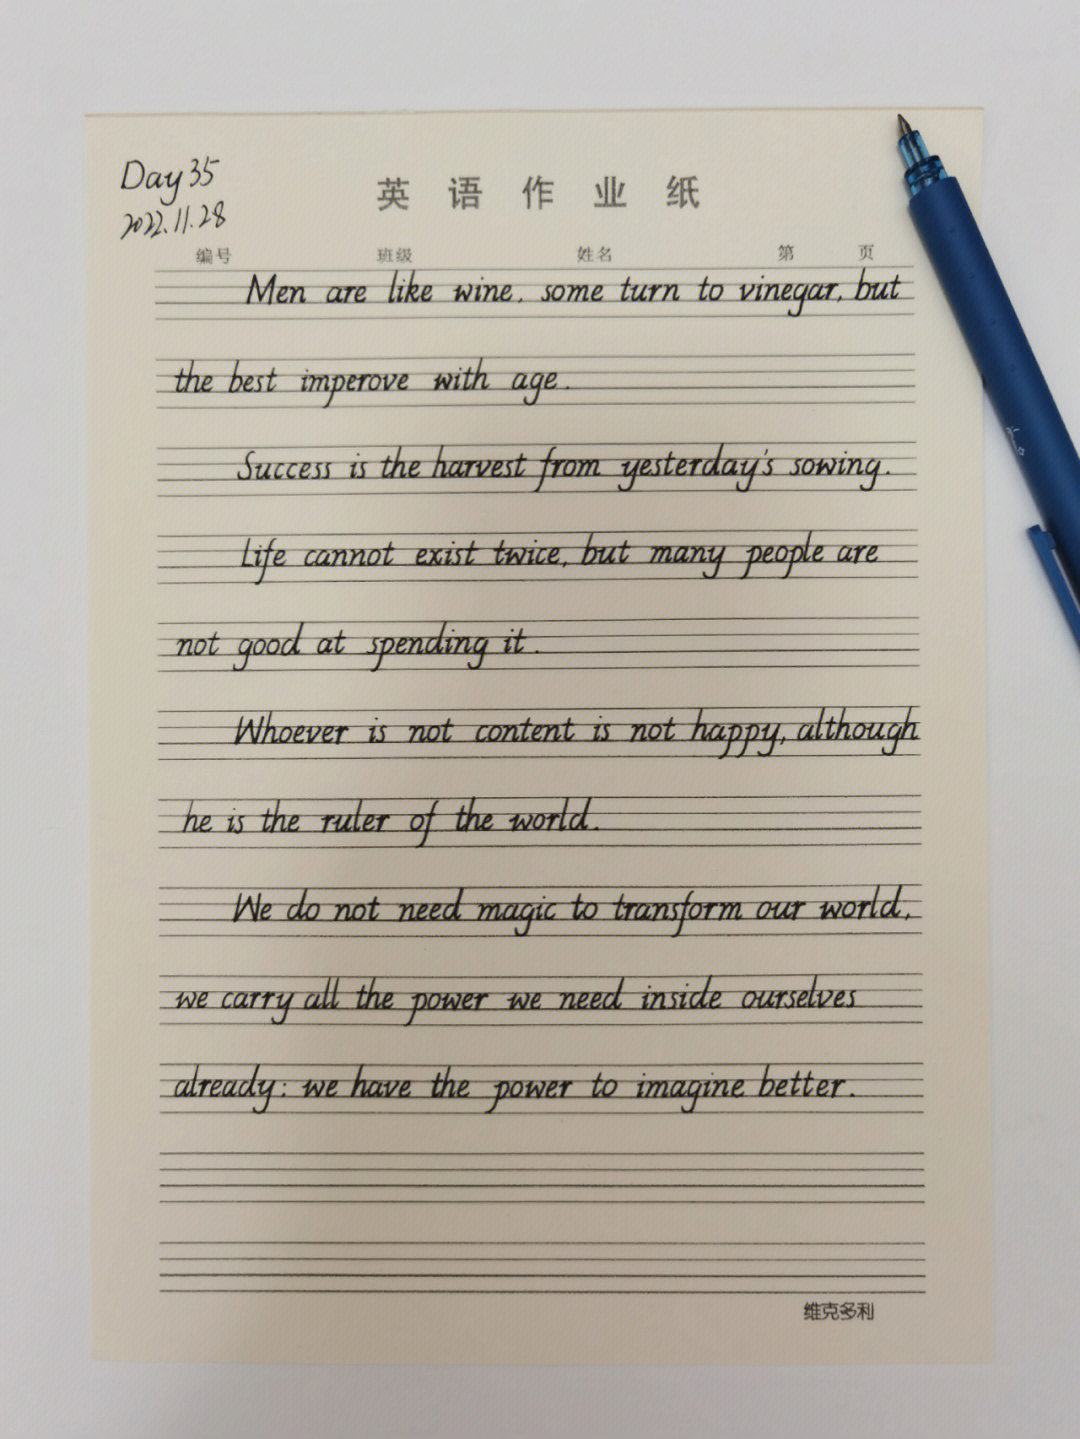 Day 35
2022.11.28
英语作业纸
编号 班级 姓名 第 页
Men are like wine. some turn to vinegar, but
the best imperove with age.
Success is the harvest from yesterday's sowing.
Life cannot exist twice, but many people are
not good at spending it.
Whoever is not content is not happy, although
he is the ruler of the world.
We do not need magic to transform our world,
we carry all the power we need inside ourselves
already: we have the power to imagine better.
维克多利